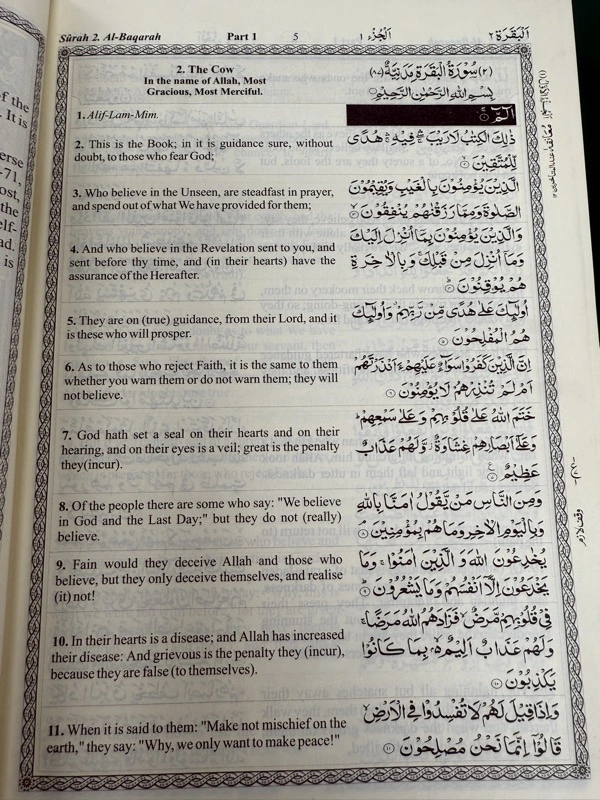 Sūrah 2. Al-Baqarah Part 1 5 اَلْجُزْء ١ اَلْبَقَرَة ٢
2. The Cow
In the name of Allah, Most
Gracious, Most Merciful.
(٢) سُوْرَةُ الْبَقَرَةِ مَدَنِيَّةٌ (٨٧)
بِسْمِ اللهِ الرَّحْمٰنِ الرَّحِيْمِ
1. Alif-Lam-Mim.
الٓمّٓ ۚ ١
2. This is the Book; in it is guidance sure, without
doubt, to those who fear God;
ذٰلِكَ الْكِتٰبُ لَا رَيْبَ ۛ فِيْهِ ۛ هُدًى
لِّلْمُتَّقِيْنَ ٢
3. Who believe in the Unseen, are steadfast in prayer,
and spend out of what We have provided for them;
الَّذِيْنَ يُؤْمِنُوْنَ بِالْغَيْبِ وَيُقِيْمُوْنَ
الصَّلٰوةَ وَمِمَّا رَزَقْنٰهُمْ يُنْفِقُوْنَ ٣
4. And who believe in the Revelation sent to you, and
sent before thy time, and (in their hearts) have the
assurance of the Hereafter.
وَالَّذِيْنَ يُؤْمِنُوْنَ بِمَآ اُنْزِلَ اِلَيْكَ
وَمَآ اُنْزِلَ مِنْ قَبْلِكَ ۚ وَبِالْاٰخِرَةِ
هُمْ يُوْقِنُوْنَ ٤
5. They are on (true) guidance, from their Lord, and it
is these who will prosper.
اُولٰٓئِكَ عَلٰى هُدًى مِّنْ رَّبِّهِمْ ۙ وَاُولٰٓئِكَ
هُمُ الْمُفْلِحُوْنَ ٥
6. As to those who reject Faith, it is the same to them
whether you warn them or do not warn them; they will
not believe.
اِنَّ الَّذِيْنَ كَفَرُوْا سَوَآءٌ عَلَيْهِمْ ءَاَنْذَرْتَهُمْ
اَمْ لَمْ تُنْذِرْهُمْ لَا يُؤْمِنُوْنَ ٦
7. God hath set a seal on their hearts and on their
hearing, and on their eyes is a veil; great is the penalty
they(incur).
خَتَمَ اللهُ عَلٰى قُلُوْبِهِمْ وَعَلٰى سَمْعِهِمْ ؕ
وَعَلٰٓى اَبْصَارِهِمْ غِشَاوَةٌ ؗ وَّلَهُمْ عَذَابٌ
عَظِيْمٌ ٧
8. Of the people there are some who say: "We believe
in God and the Last Day;" but they do not (really)
believe.
وَمِنَ النَّاسِ مَنْ يَّقُوْلُ اٰمَنَّا بِاللهِ
وَبِالْيَوْمِ الْاٰخِرِ وَمَا هُمْ بِمُؤْمِنِيْنَ ٨
9. Fain would they deceive Allah and those who
believe, but they only deceive themselves, and realise
(it) not!
يُخٰدِعُوْنَ اللهَ وَالَّذِيْنَ اٰمَنُوْا ۚ وَمَا
يَخْدَعُوْنَ اِلَّآ اَنْفُسَهُمْ وَمَا يَشْعُرُوْنَ ٩
10. In their hearts is a disease; and Allah has increased
their disease: And grievous is the penalty they (incur),
because they are false (to themselves).
فِيْ قُلُوْبِهِمْ مَّرَضٌ ۙ فَزَادَهُمُ اللهُ مَرَضًا ۚ
وَلَهُمْ عَذَابٌ اَلِيْمٌۢ ۙ بِمَا كَانُوْا
يَكْذِبُوْنَ ١٠
11. When it is said to them: "Make not mischief on the
earth," they say: "Why, we only want to make peace!"
وَاِذَا قِيْلَ لَهُمْ لَا تُفْسِدُوْا فِي الْاَرْضِ ۙ
قَالُوْٓا اِنَّمَا نَحْنُ مُصْلِحُوْنَ ١١
وقف لازم
of the
It is
verse
-71,
ost,
the
elf-
ad.
is